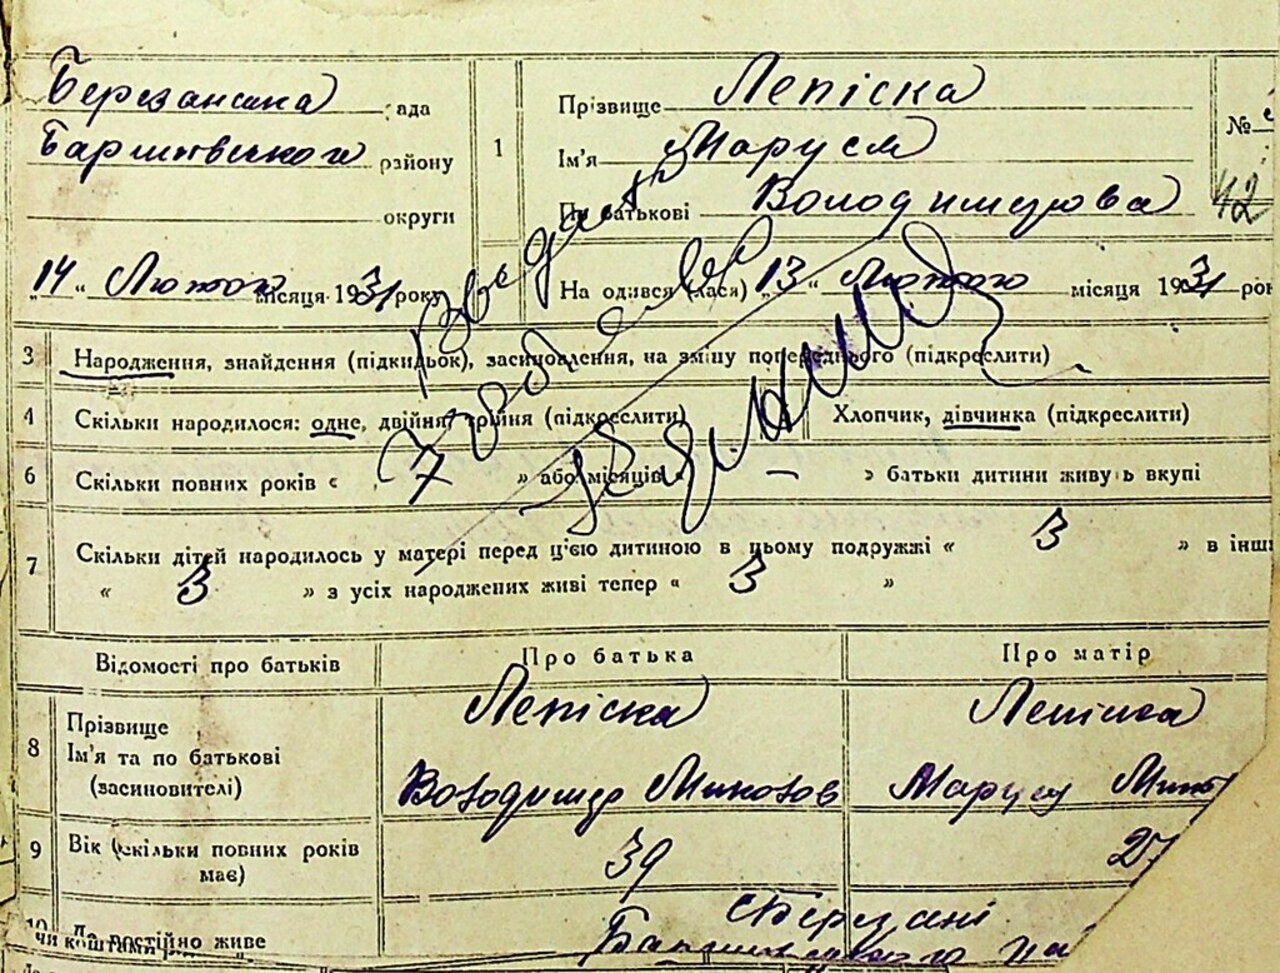 Березанська рада
Баришівського району
округи
"14" Лютого місяця 1931 року
1
Прізвище Лепіска
Ім'я Маруся
По батькові Володимирова
№
42
На одився (лася) "13" Лютого місяця 1931 рок
3 Народження, знайдення (підкидьок), засиновлення, на зміну попереднього (підкреслити)
4 Скільки народилося: одне, двійня, трійня (підкреслити)
Хлопчик, дівчинка (підкреслити)
6 Скільки повних років « 7 » або місяців « — » батьки дитини живуть вкупі
7 Скільки дітей народилось у матері перед цією дитиною в цьому подружжі « 3 » в інш
« 3 » з усіх народжених живі тепер « 3 »
Відомості про батьків
Про батька
Про матір
8 Прізвище
Ім'я та по батькові
(засиновителі)
Лепіска
Володимир Миколов
Лепіска
Маруся
9 Вік (скільки повних років
має)
39
27
10 Де постійно живе
с Березані
чи коштами